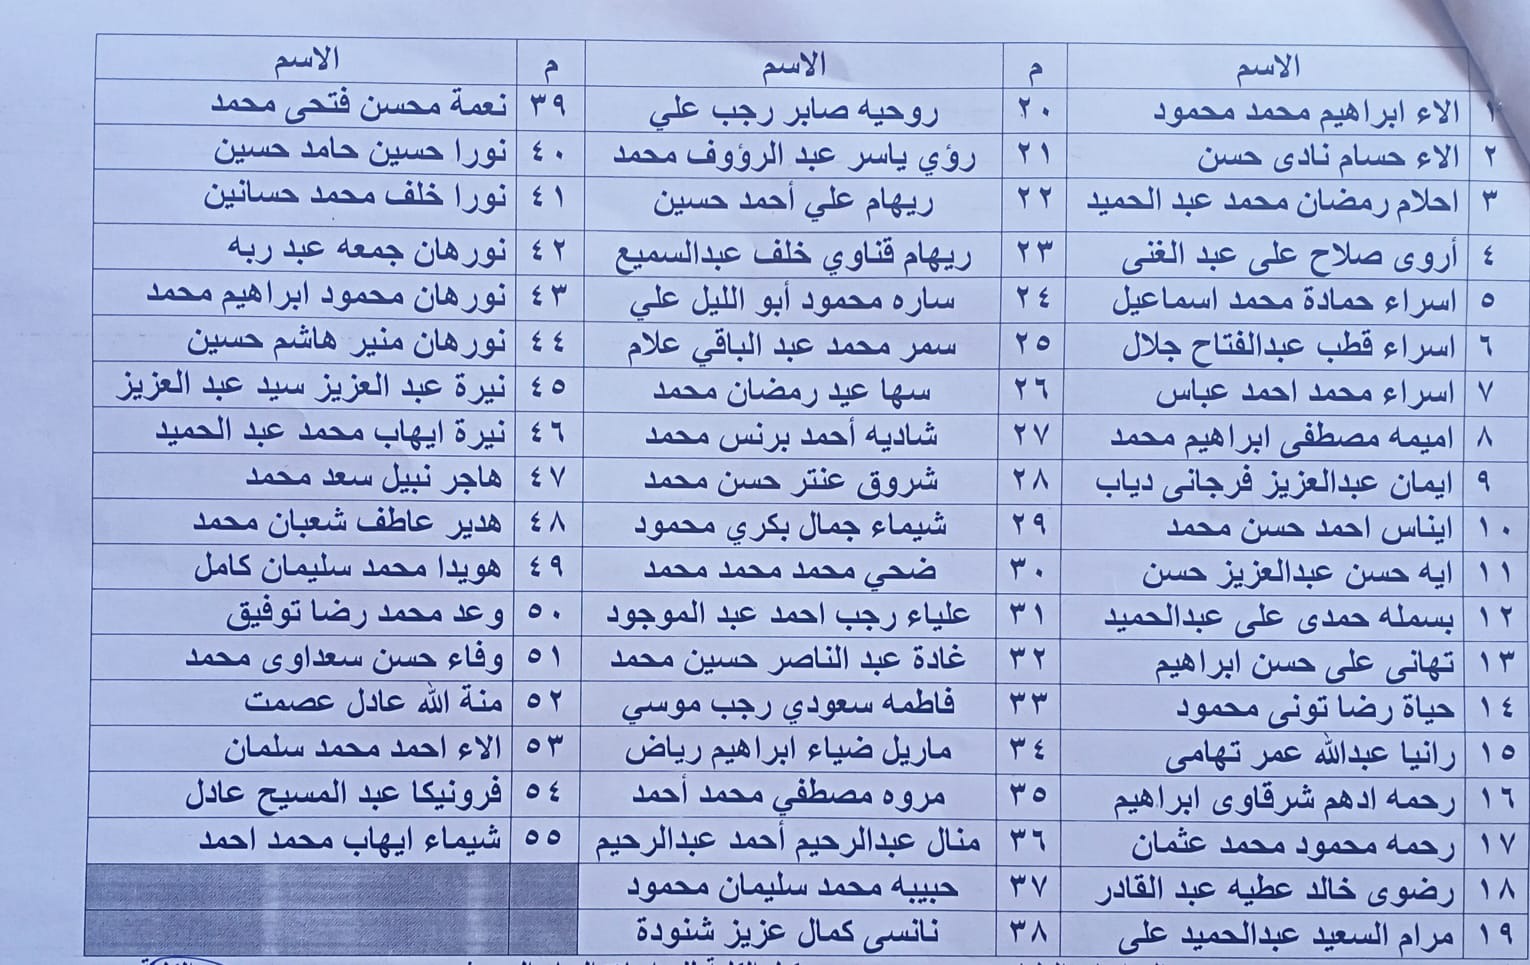 م الاسم
١ الاء ابراهيم محمد محمود
٢ الاء حسام نادى حسن
٣ احلام رمضان محمد عبد الحميد
٤ أروى صلاح على عبد الغنى
٥ اسراء حمادة محمد اسماعيل
٦ اسراء قطب عبدالفتاح جلال
٧ اسراء محمد احمد عباس
٨ اميمه مصطفى ابراهيم محمد
٩ ايمان عبدالعزيز فرجانى دياب
١٠ ايناس احمد حسن محمد
١١ ايه حسن عبدالعزيز حسن
١٢ بسمله حمدى على عبدالحميد
١٣ تهانى على حسن ابراهيم
١٤ حياة رضا تونى محمود
١٥ رانيا عبدالله عمر تهامى
١٦ رحمه ادهم شرقاوى ابراهيم
١٧ رحمه محمود محمد عثمان
١٨ رضوى خالد عطيه عبد القادر
١٩ مرام السعيد عبدالحميد على
م الاسم
٢٠ روحيه صابر رجب علي
٢١ رؤي ياسر عبد الرؤوف محمد
٢٢ ريهام علي أحمد حسين
٢٣ ريهام قناوي خلف عبدالسميع
٢٤ ساره محمود أبو الليل علي
٢٥ سمر محمد عبد الباقي علام
٢٦ سها عيد رمضان محمد
٢٧ شاديه أحمد برنس محمد
٢٨ شروق عنتر حسن محمد
٢٩ شيماء جمال بكري محمود
٣٠ ضحي محمد محمد محمد
٣١ علياء رجب احمد عبد الموجود
٣٢ غادة عبد الناصر حسين محمد
٣٣ فاطمه سعودي رجب موسي
٣٤ ماريل ضياء ابراهيم رياض
٣٥ مروه مصطفي محمد أحمد
٣٦ منال عبدالرحيم أحمد عبدالرحيم
٣٧ حبيبه محمد سليمان محمود
٣٨ نانسى كمال عزيز شنودة
م الاسم
٣٩ نعمة محسن فتحى محمد
٤٠ نورا حسين حامد حسين
٤١ نورا خلف محمد حسانين
٤٢ نورهان جمعه عبد ربه
٤٣ نورهان محمود ابراهيم محمد
٤٤ نورهان منير هاشم حسين
٤٥ نيرة عبد العزيز سيد عبد العزيز
٤٦ نيرة ايهاب محمد عبد الحميد
٤٧ هاجر نبيل سعد محمد
٤٨ هدير عاطف شعبان محمد
٤٩ هويدا محمد سليمان كامل
٥٠ وعد محمد رضا توفيق
٥١ وفاء حسن سعداوى محمد
٥٢ منة الله عادل عصمت
٥٣ الاء احمد محمد سلمان
٥٤ فرونيكا عبد المسيح عادل
٥٥ شيماء ايهاب محمد احمد